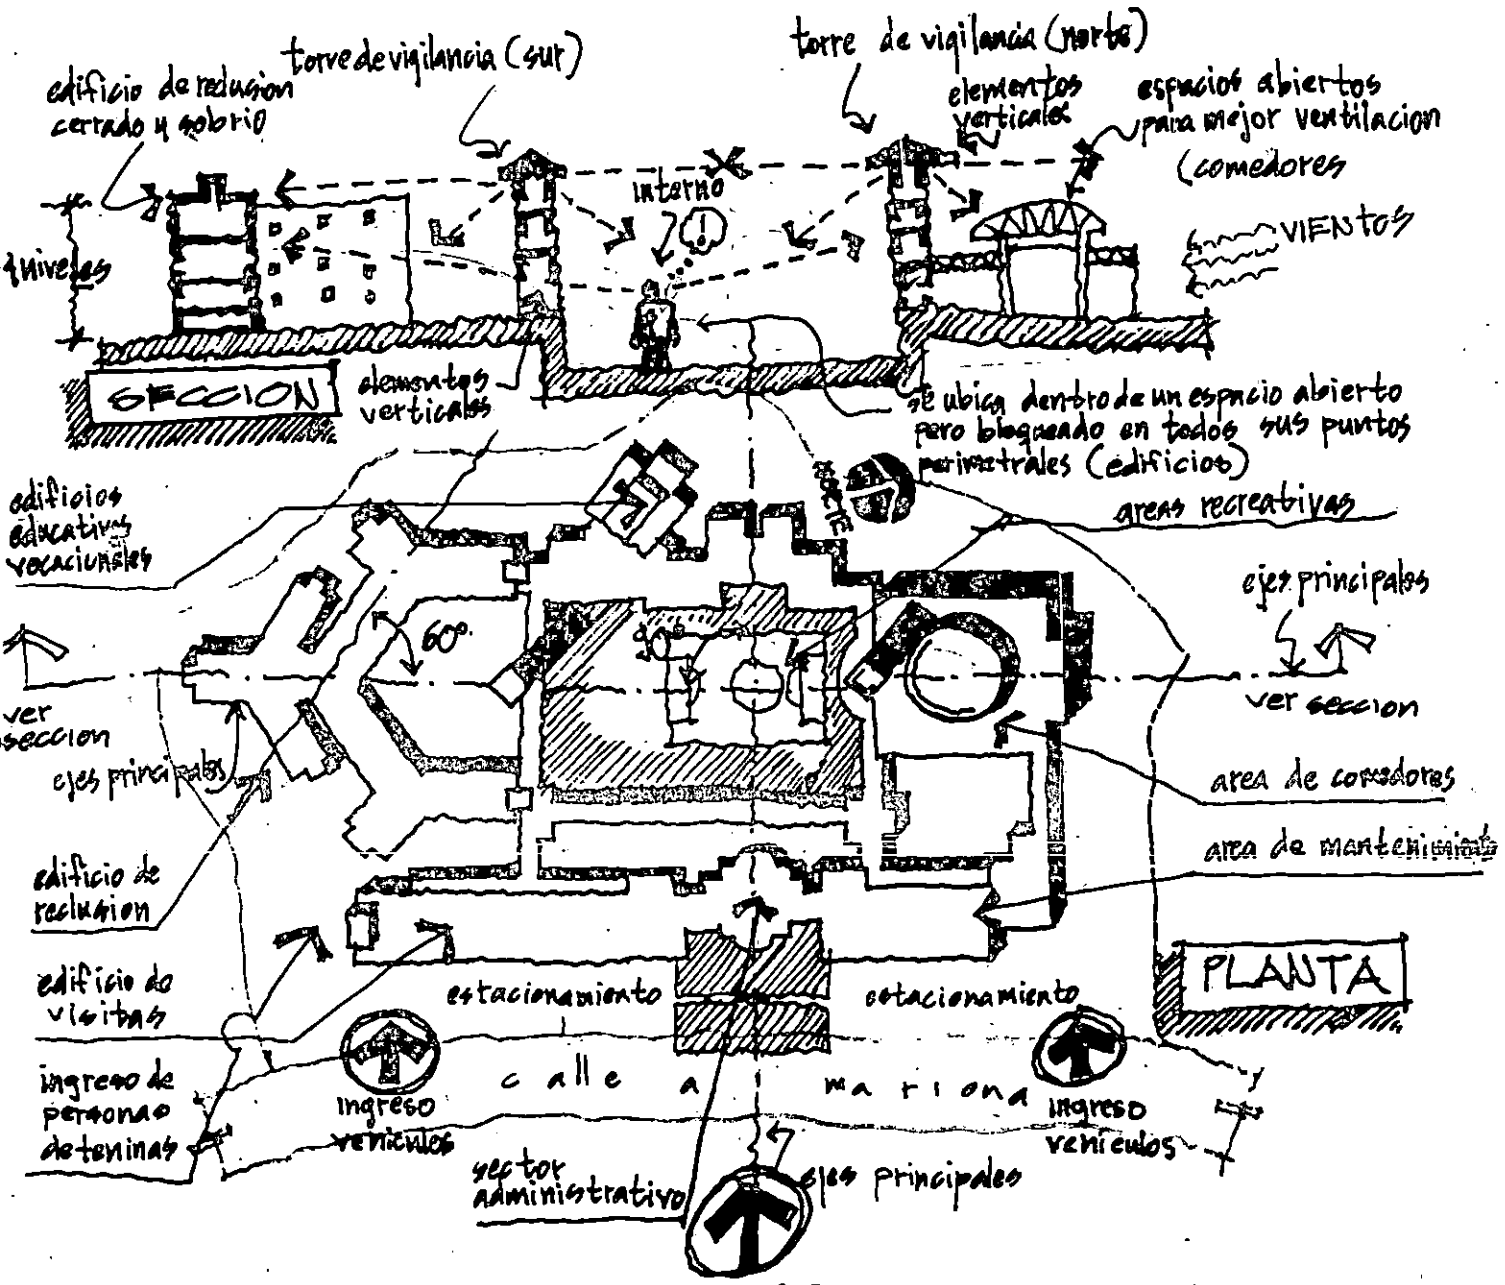 torre de vigilancia (sur)
torre de vigilancia (norte)
edificio de reclusion
cerrado y sobrio
elementos
verticales
espacios abiertos
para mejor ventilacion
(comedores
interno
!
VIENTOS
4 niveles
SECCION
elementos
verticales
se ubica dentro de un espacio abierto
pero bloqueado en todos sus puntos
perimetrales (edificios)
NORTE
edificios
educativos
vocacionales
areas recreativas
ejes principales
60°
90°
ver
seccion
ver seccion
ejes principales
area de comedores
area de mantenimiento
edificio de
reclusion
edificio de
visitas
PLANTA
estacionamiento
estacionamiento
ingreso de
personas
deteninas
calle a mariona
ingreso
vehicules
ingreso
vehiculos
sector
administrativo
ejes principales